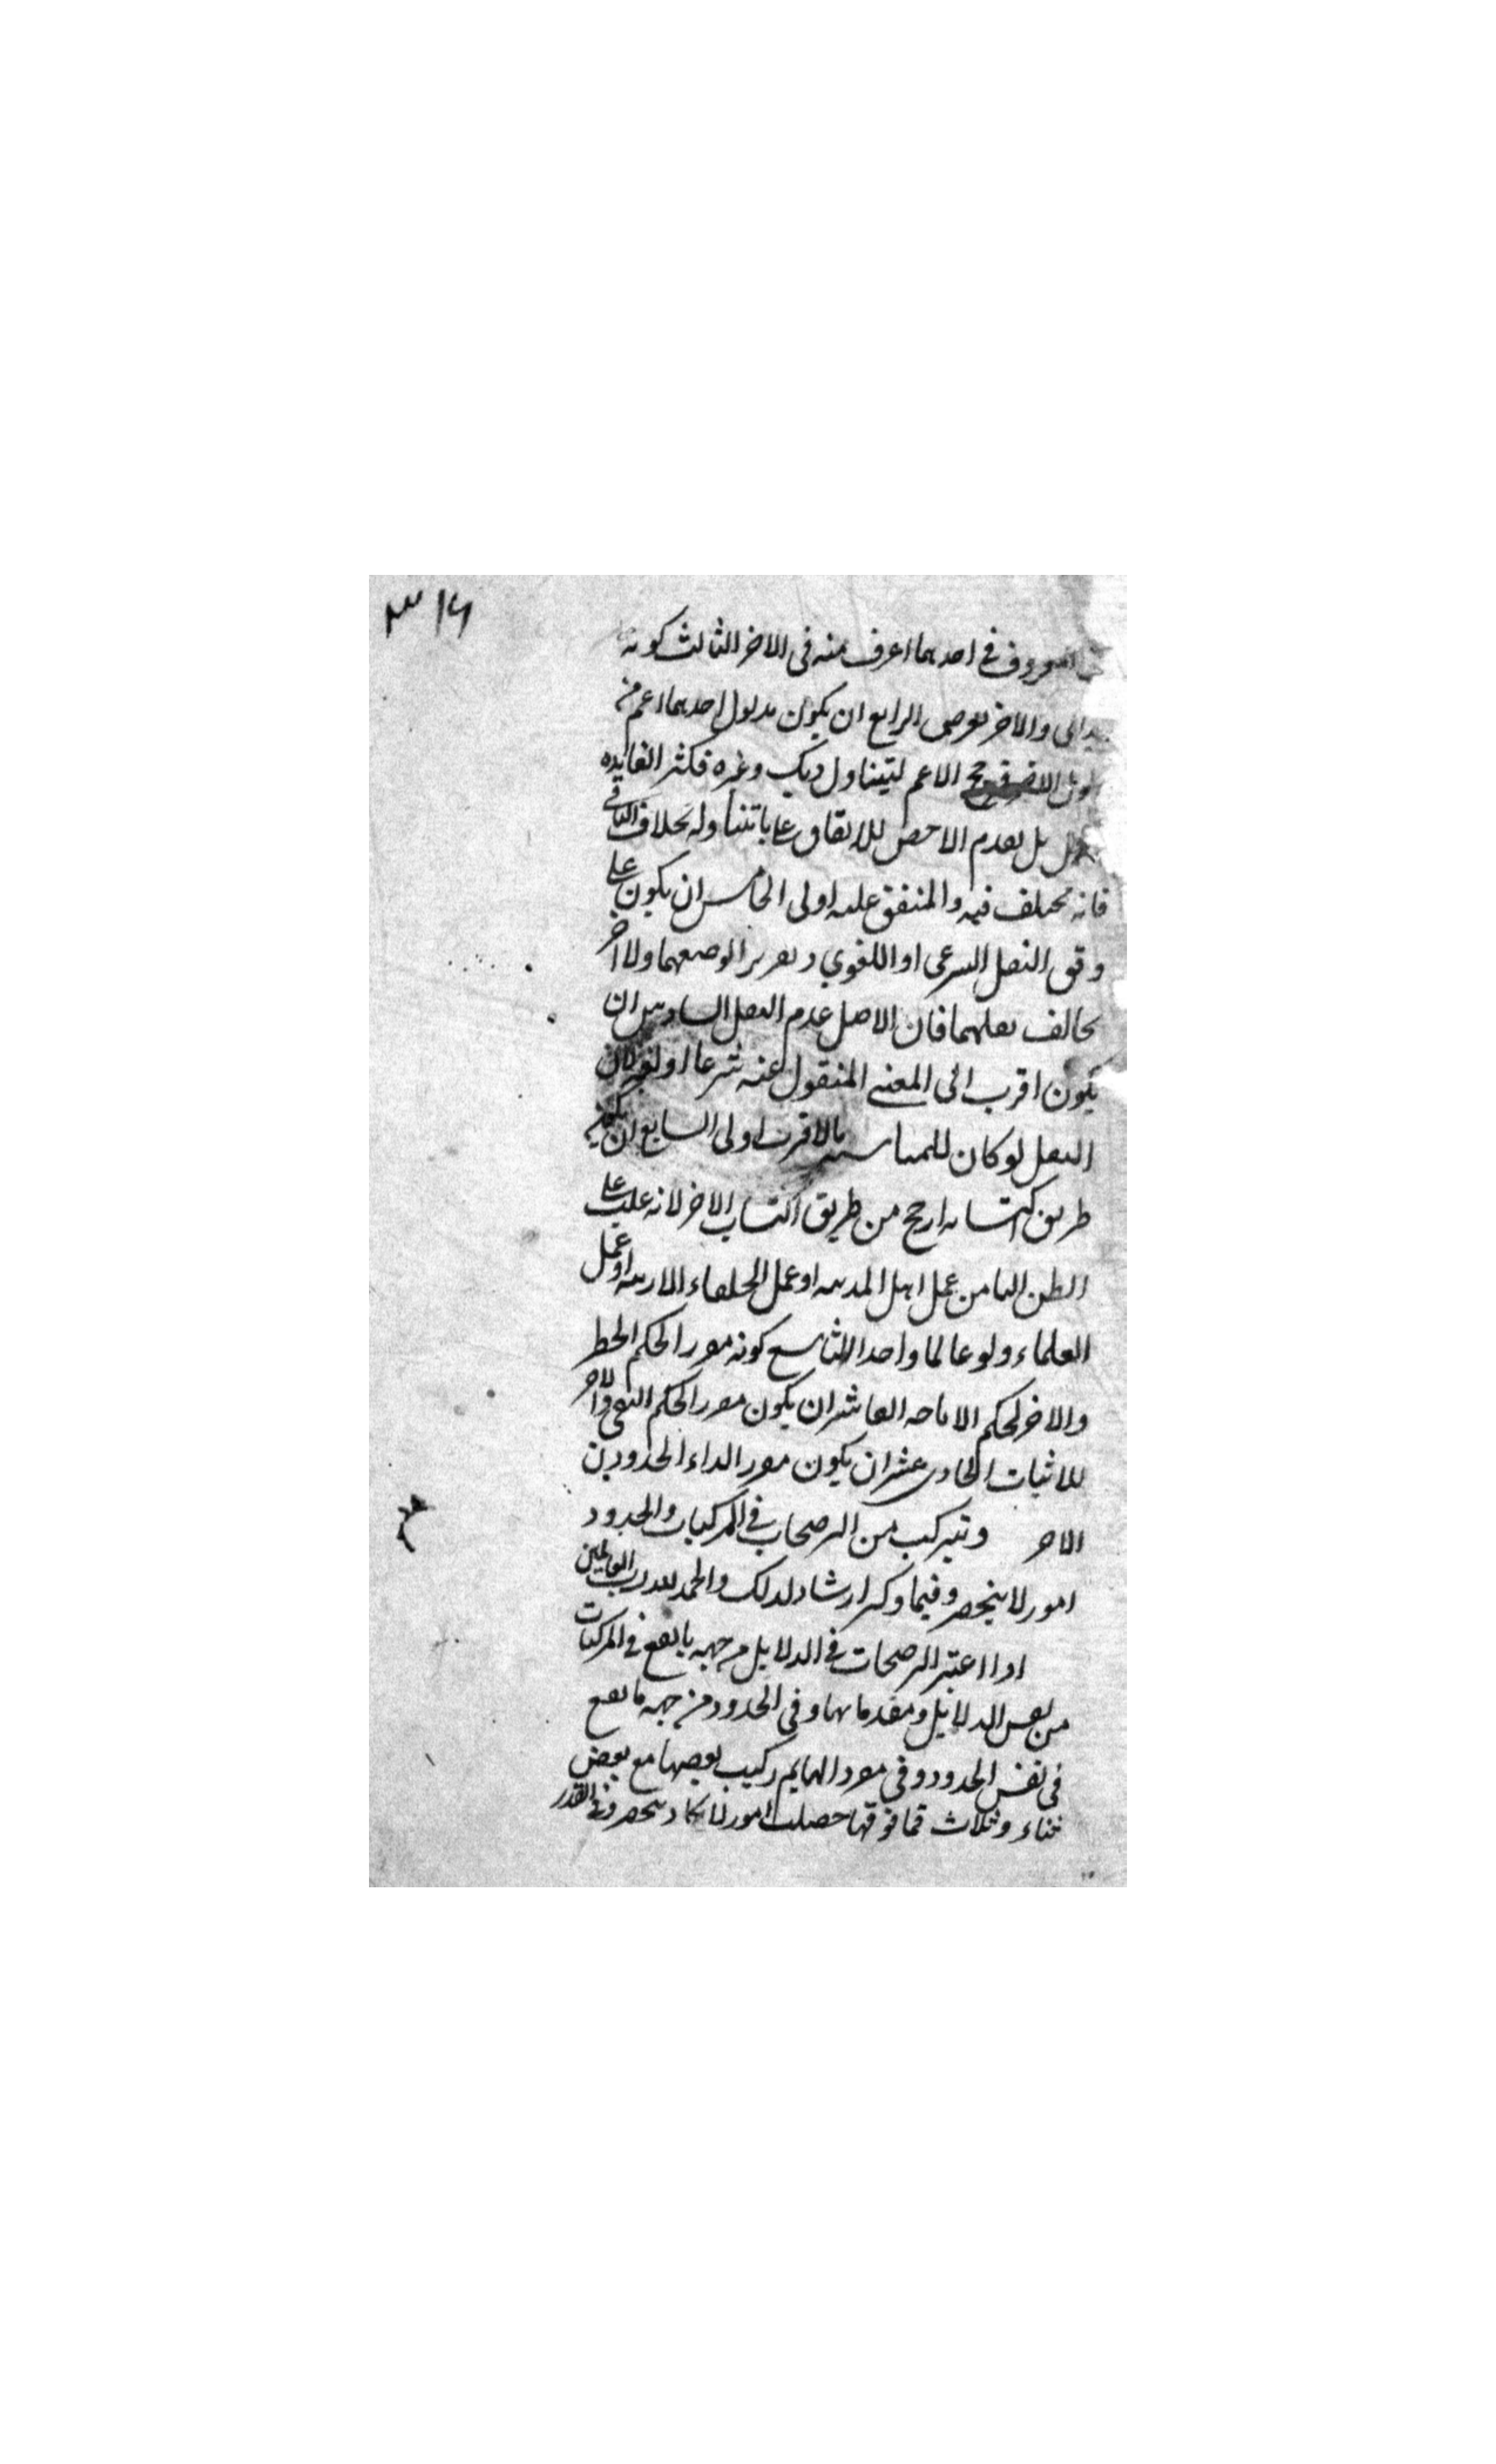 ٣١٦
المعروف في احدهما اعرف منه في الاخر الثالث كونه
والاخر عرضي الرابع ان يكون مدلول احدهما اعم من
الاخر فيرجح الاعم ليتناول ذلك وغيره فكثر الفايده
بل يقدم الاخص للاتفاق على ما تناوله بخلاف الباقي
فانه مختلف فيه والمتفق عليه اولى الخامس ان يكون على
وفق النقل الشرعي او اللغوي وتقريرا لوضعهما والاخر
يخالف نقلهما فان الاصل عدم النقل السادس ان
يكون اقرب الى المعنى المنقول عنه شرعا او لغة فان
النقل لو كان للمناسبه فالاقرب اولى السابع ان يكون
طريق اكتسابه ارجح من طريق اكتساب الاخر لانه اغلب على
الظن الثامن عمل اهل المدينه او عمل الخلفاء الاربعه او عمل
العلماء ولو عالما واحدا التاسع كونه مقررا لحكم الحظر
والاخر لحكم الاباحه العاشر ان يكون مقررا لحكم النفي والاخر
للاثبات الحادي عشر ان يكون مقررا لدرء الحد دون
الاخر وتتركب من الترجيحات في المركبات والحدود
امور لا ينحصر وفيما ذكر ارشاد لذلك والحمد لله رب العالمين
اذا اعتبر الترجيحات في الدلايل من جهه ما يقع في المركبات
من نفس الدلايل ومقدماتها وفي الحدود من جهه ما يقع
في نفس الحدود وفي مفرداتها ثم ركب بعضها مع بعض
ثناء وثلاث فما فوقها حصلت امور لا يكاد ينحصر وفي القدر